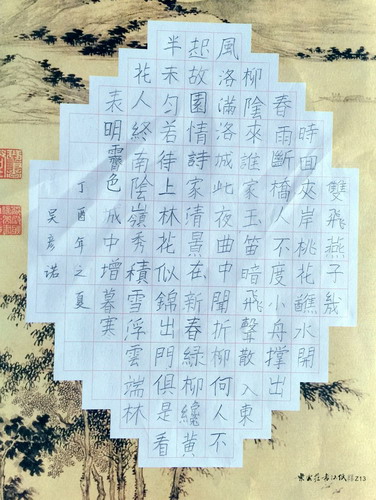 雙飛燕子幾
時回夾岸桃花蘸水開
春雨斷橋人不度小舟撐出
柳陰來誰家玉笛暗飛聲散入東
風洛滿洛城此夜曲中聞折柳何人不
起故園情詩家清景在新春綠柳纔黃
半未勻若待上林花似錦出門俱是看
花人終南陰嶺秀積雪浮雲端林
表明霽色城中增暮寒
丁酉年之夏
吳彥諾